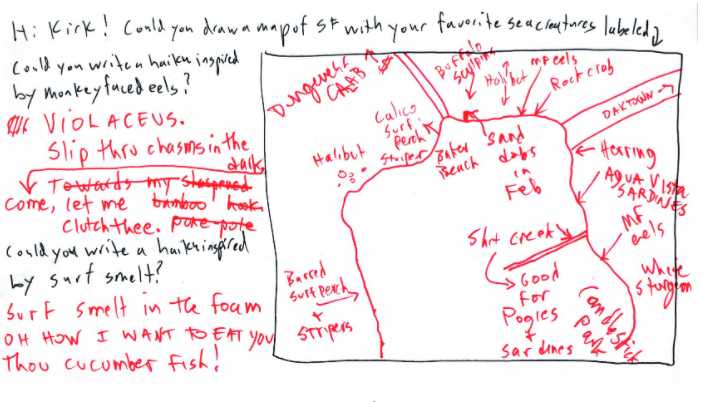 Hi Kirk! Could you draw a map of SF with your favorite sea creatures labeled
Could you write a haiku inspired
by monkeyfaced eels?
VIOLACEUS.
Slip thru chasms in the
dark,
Towards my
come, let me bamboo hook
Clutch thee. Poke-pole
Could you write a haiku inspired
by surf smelt?
Surf smelt in the foam
OH HOW I WANT TO EAT YOU
Thou cucumber fish!
Dungeness
CRAB
Buffalo
sculpins
Halibut
MF eels
Rock crab
OAKTOWN →
Calico
Surf
Perch
Striper
Halibut
Baker
Beach
Sand
dabs
in
Feb
Herring
AQUA VISTA
SARDINES
MF
eels
Shit creek
Good
For
Pogies
+
Sardines
White
Sturgeon
Candlestick
Park
Barred
Surf perch
+
Stripers